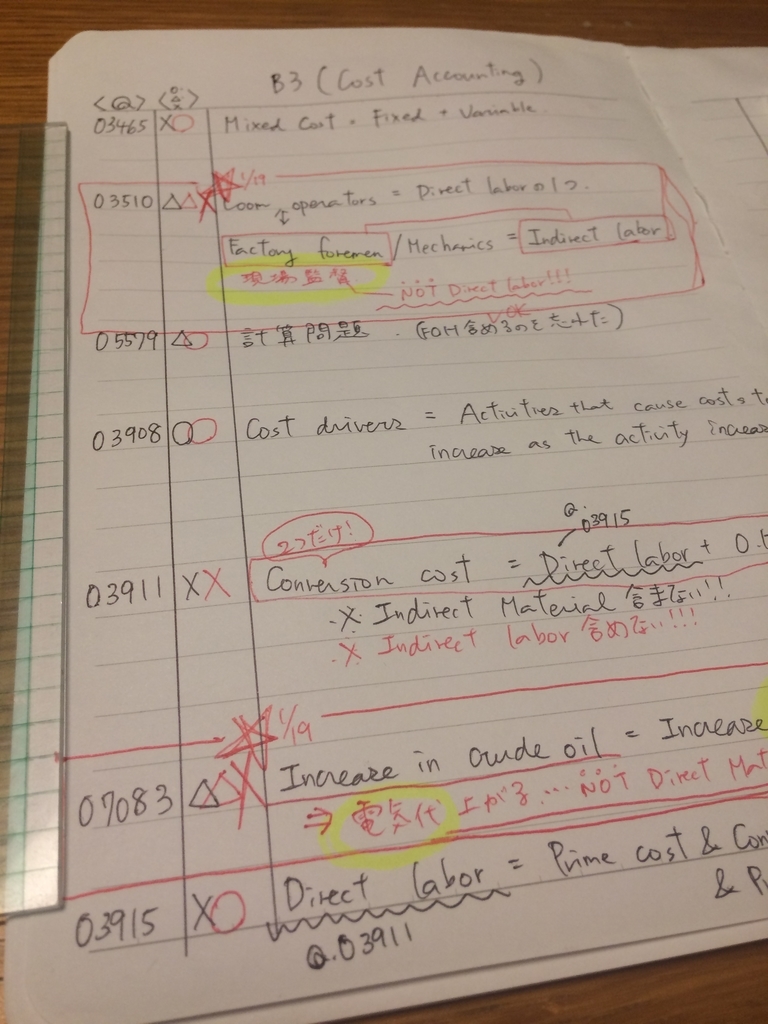 B3 (Cost Accounting)
<Q> <○△×>
03465 X○ Mixed Cost = Fixed + Variable
1/19
03510 △△X Loom operators = Direct laborの1つ.
Factory foremen / Mechanics = Indirect labor
現場監督 NOT Direct labor!!!
OK
05579 △○ 計算問題. (FOH含めるのを忘れた)
03908 ○○ Cost drivers = Activities that cause costs to
increase as the activity increase
2つだけ! Q.03915
03911 XX Conversion cost = Direct labor +
※ Indirect Material 含まない!!
※ Indirect labor 含めない!!!
1/19
07083 △X Increase in crude oil = Increase
⇒ 電気代 上がる... NOT Direct Mat
03915 X○ Direct labor = Prime cost & Con
& Pr
Q.03911